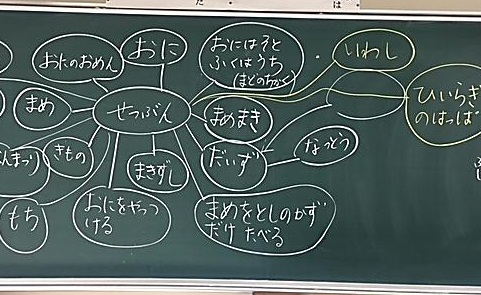 おに
おにのおめん
おにはそと
ふくはうち
(まどのちかく)
いわし
ひいらぎ
のはっぱ
まめ
せつぶん
まめまき
きもの
まきずし
だいず
なっとう
もち
おにをやっつ
ける
まめをとしのかず
だけ たべる